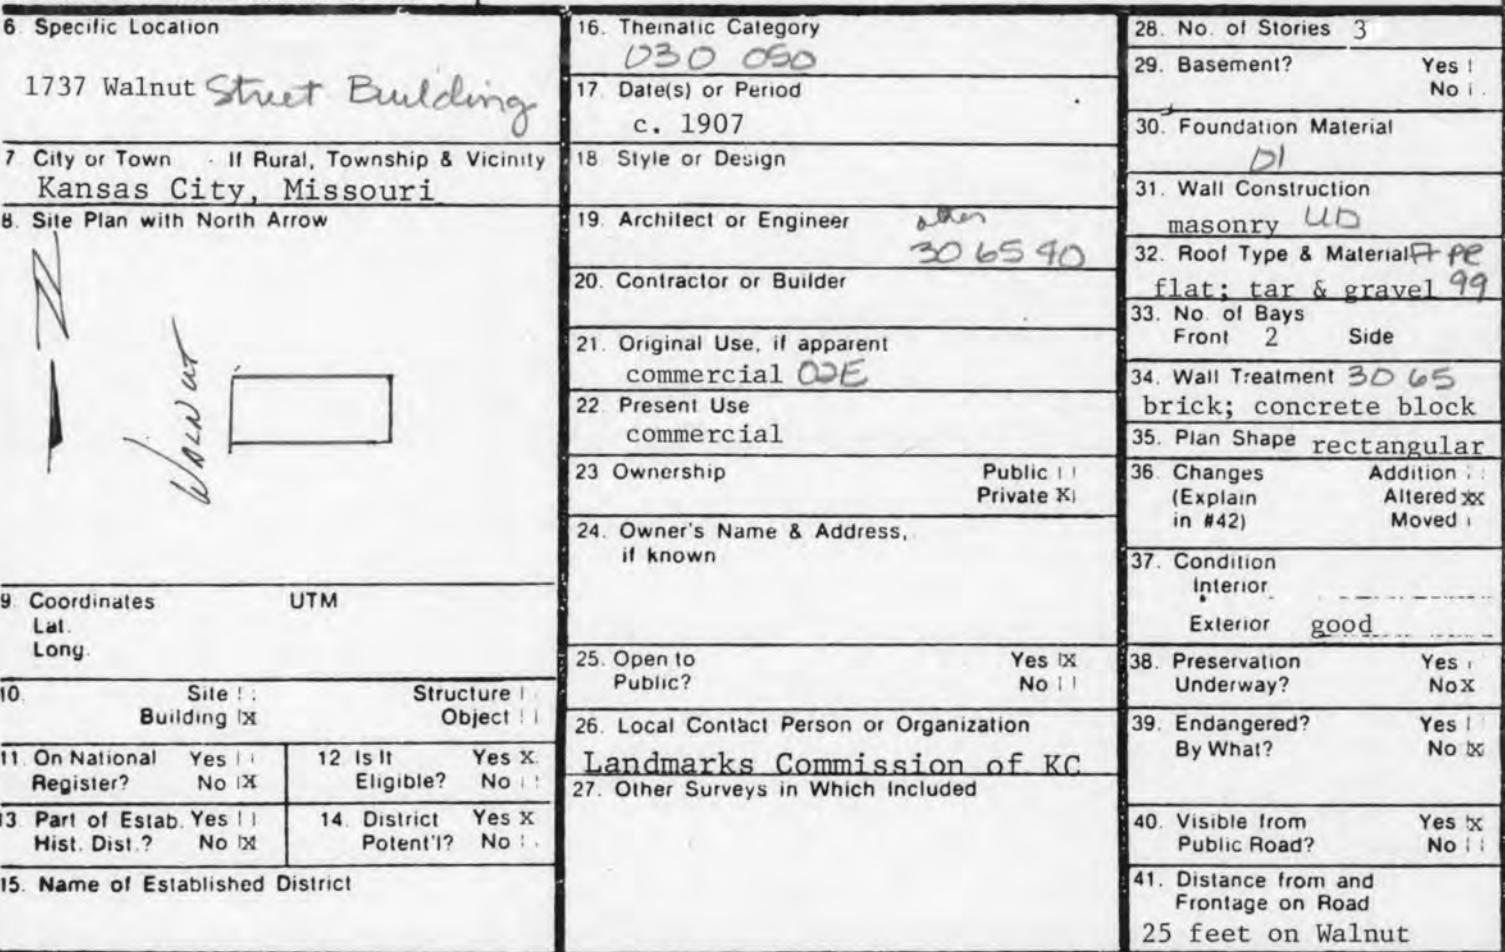 6 Specific Location
1737 Walnut Street Building
7 City or Town If Rural, Township & Vicinity
Kansas City, Missouri
8. Site Plan with North Arrow
N
Walnut
9. Coordinates UTM
Lat.
Long.
10. Site Structure
Building X Object
11. On National Yes
Register? No X
12 Is It Yes X
Eligible? No
13. Part of Estab. Yes
Hist. Dist.? No X
14. District Yes X
Potent'l? No
15. Name of Established District
16. Thematic Category
030 050
17. Date(s) or Period
c. 1907
18 Style or Design
19. Architect or Engineer other
30 65 40
20. Contractor or Builder
21. Original Use, if apparent
commercial 02E
22. Present Use
commercial
23 Ownership Public
Private X
24. Owner's Name & Address,
if known
25. Open to Yes X
Public? No
26. Local Contact Person or Organization
Landmarks Commission of KC
27. Other Surveys in Which Included
28. No. of Stories 3
29. Basement? Yes
No
30. Foundation Material
31. Wall Construction
masonry UD
32. Roof Type & Material PE
flat; tar & gravel 99
33. No. of Bays
Front 2 Side
34. Wall Treatment 30 65
brick; concrete block
35. Plan Shape rectangular
36. Changes Addition
(Explain Altered xx
in #42) Moved
37. Condition
Interior
Exterior good
38. Preservation Yes
Underway? No X
39. Endangered? Yes
By What? No X
40. Visible from Yes X
Public Road? No
41. Distance from and
Frontage on Road
25 feet on Walnut